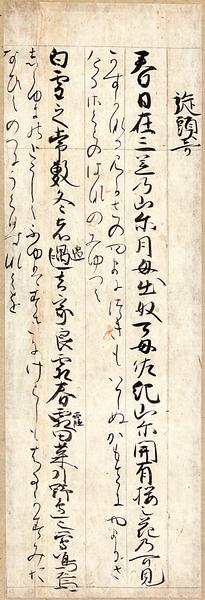 旋頭哥
春日在三笠乃山尓月母出奴可母佐紀山尓開有桜之花乃可見
かすかなるみかさのやまにつきもいてぬかもさきやまにさ
けるさくらのはなのみゆへく
白雪之常敷冬者過去家良霜春霞田菜引野邊之鴬鳴焉
しらゆきのとこしくふゆはすきにけらしもはるかすみた
なひくのへのうくひす